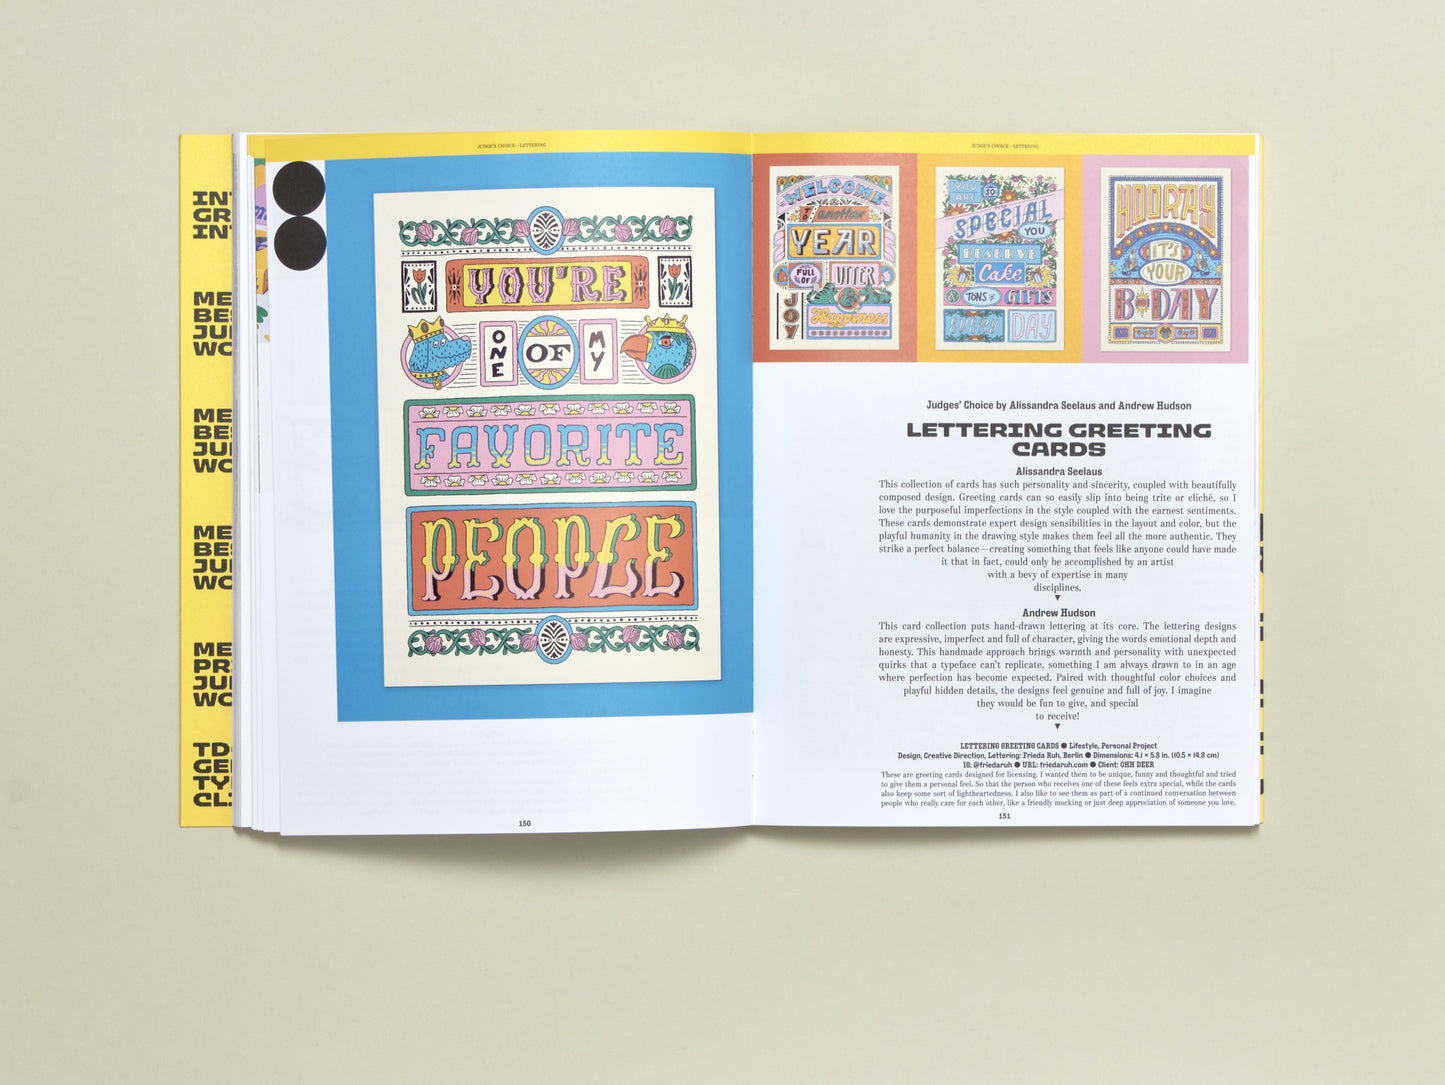 INT
GR
INT
ME
BES
JU
WO
ME
BES
JU
WO
ME
BES
JU
WO
ME
PR
JU
WO
TD
GE
TY
CLI
JUDGE'S CHOICE—LETTERING
YOU'RE
ONE OF MY
FAVORITE
PEOPLE
150
JUDGE'S CHOICE—LETTERING
WELCOME
TO another
YEAR
FULL OF UTTER
JOY
&
Happiness
YOU ARE SO
SPECIAL
YOU
DESERVE
Cake
& TONS of GIFTS
EVERY DAY
HOORAY
IT'S
YOUR
B-DAY
Judges' Choice by Alissandra Seelaus and Andrew Hudson
LETTERING GREETING
CARDS
Alissandra Seelaus
This collection of cards has such personality and sincerity, coupled with beautifully
composed design. Greeting cards can so easily slip into being trite or cliché, so I
love the purposeful imperfections in the style coupled with the earnest sentiments.
These cards demonstrate expert design sensibilities in the layout and color, but the
playful humanity in the drawing style makes them feel all the more authentic. They
strike a perfect balance—creating something that feels like anyone could have made
it that in fact, could only be accomplished by an artist
with a bevy of expertise in many
disciplines.
Andrew Hudson
This card collection puts hand-drawn lettering at its core. The lettering designs
are expressive, imperfect and full of character, giving the words emotional depth and
honesty. This handmade approach brings warmth and personality with unexpected
quirks that a typeface can't replicate, something I am always drawn to in an age
where perfection has become expected. Paired with thoughtful color choices and
playful hidden details, the designs feel genuine and full of joy. I imagine
they would be fun to give, and special
to receive!
LETTERING GREETING CARDS ● Lifestyle, Personal Project
Design, Creative Direction, Lettering: Frieda Ruh, Berlin ● Dimensions: 4.1 × 5.8 in. (10.5 × 14.8 cm)
IG: @friedaruh ● URL: friedaruh.com ● Client: OHH DEER
These are greeting cards designed for licensing. I wanted them to be unique, funny and thoughtful and tried
to give them a personal feel. So that the person who receives one of these feels extra special, while the cards
also keep some sort of lightheartedness. I also like to see them as part of a continued conversation between
people who really care for each other, like a friendly mocking or just deep appreciation of someone you love.
151